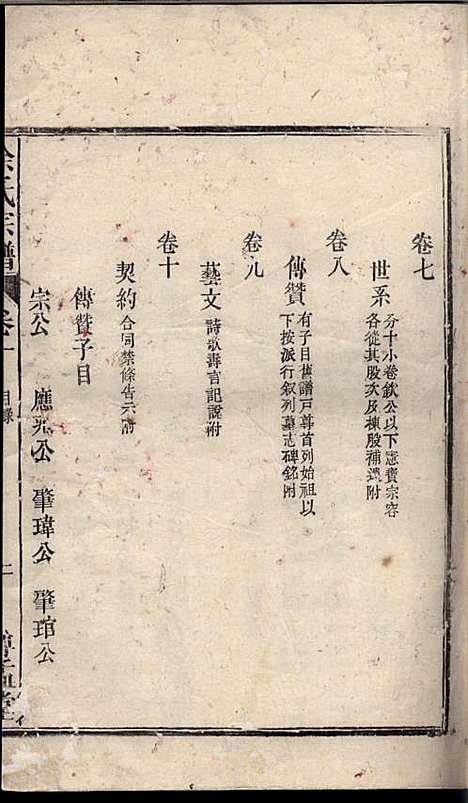 卷七
世系 分十小卷欽公以下憲寶宗容
各從其股次及棟股補遺附
卷八
傳贊 有子目舊譜戸尊首列始祖以
下按派行叙列墓志碑銘附
卷九
藝文 詩歌壽言記說附
卷十
契約 合同禁條告示附
傳贊子目
宗公 應光公 肇瑋公 肇琯公
氏宗譜 卷一 目錄 二